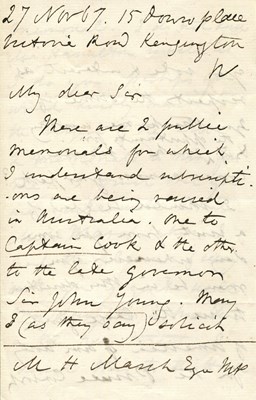 27 Nov 67. 15 Douro place
Victoria Road Kensington
W
My dear Sir
There are 2 public
memorials for which
I understand subscripti
.ons are being raised
in Australia. One to
Captain Cook & the other
to the late governor
Sir John Young. May
I (as they say) solicit
M H Marsh Esqr MP